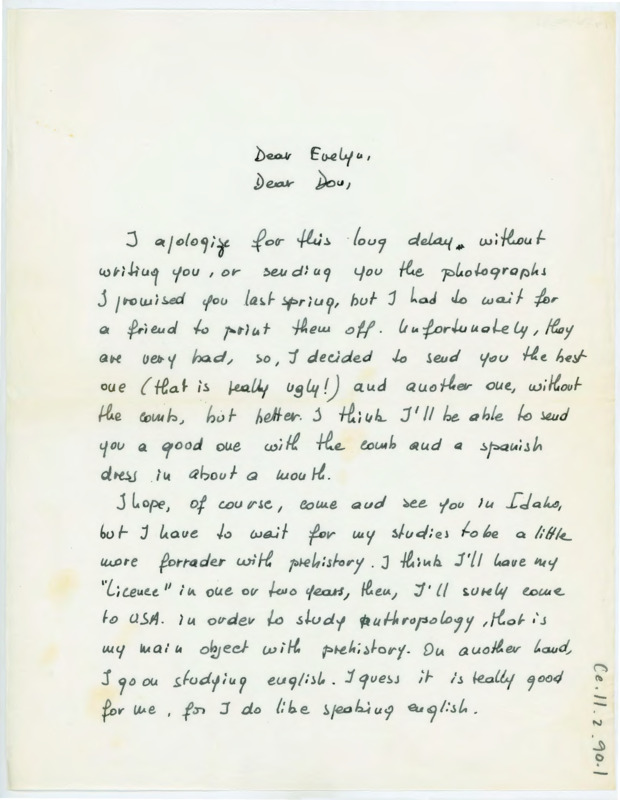 Dear Evelyn,
Dear Don,
I apologize for this long delay, without
writing you, or sending you the photographs
I promised you last spring, but I had to wait for
a friend to print them off. Unfortunately, they
are very bad, so, I decided to send you the best
one (that is really ugly!) and another one, without
the comb, but better. I think I'll be able to send
you a good one with the comb and a spanish
dress in about a month.
I hope, of course, come and see you in Idaho,
but I have to wait for my studies to be a little
more forrader with prehistory. I think I'll have my
"licence" in one or two years, then, I'll surely come
to USA. in order to study anthropology, that is
my main object with prehistory. On another hand,
I go on studying english. I guess it is really good
for me, for I do like speaking english.
Ce.11.2.90.1